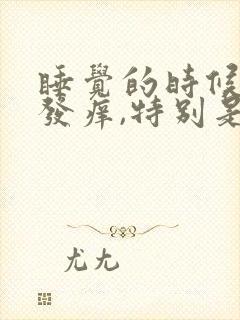 睡覺的時候
發痒,特別是
尤九